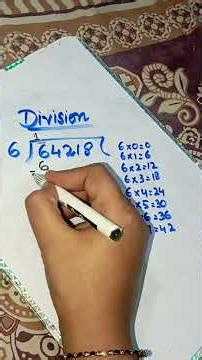 Division
1
6 64218
6
6×0=0
6×1=6
6×2=12
6×3=18
6×4=24
×5=30
6=36
=42